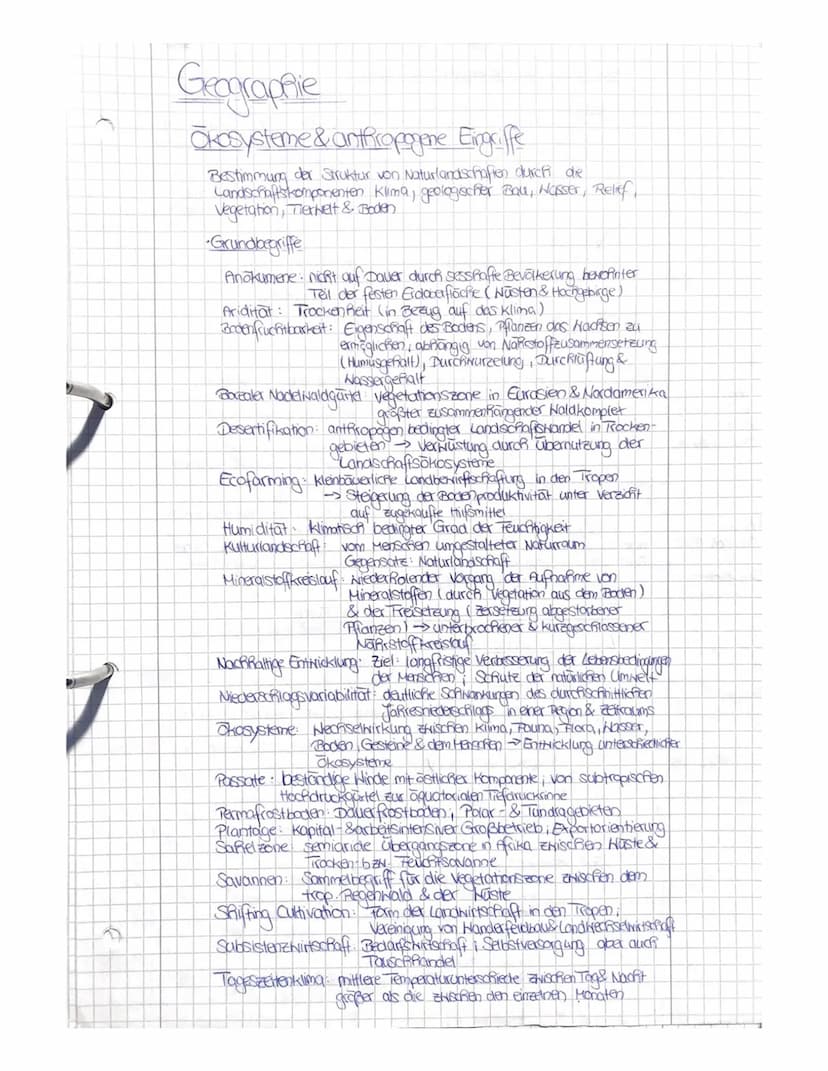 Geographie
Ökosysteme & anthropogene Eingriffe
Bestimmung der Struktur von Naturlandschaften durch die
Landschaftskomponenten Klima, geologischer Bau, Wasser, Relief,
Vegetation, Tierwelt & Boden
·Grundbegriffe
Anökumene: nicht auf Dauer durch sesshafte Bevölkerung bewohnter
Teil der festen Erdoberfläche (Wüsten & Hochgebirge)
Aridität: Trockenheit (in Bezug auf das Klima)
Bodenfruchtbarkeit: Eigenschaft des Bodens, Pflanzen das Wachsen zu
ermöglichen, abhängig von Nährstoffzusammensetzung
(Humusgehalt), Durchwurzelung, Durchlüftung &
Wassergehalt
Borealer Nadelwaldgürtel: Vegetationszone in Eurasien & Nordamerika
größter zusammenhängender Waldkomplet
Desertifikation: anthropogen bedingter Landschaftswandel in Trocken-
gebieten → Verwüstung durch Übernutzung der
Landschaftsökosysteme
Ecofarming: Kleinbäuerliche Landbewirtschaftung in den Tropen
→ Steigerung der Bodenproduktivität unter Verzicht
auf zugekaufte Hilfsmittel
Humidität: klimatisch bedingter Grad der Feuchtigkeit
Kulturlandschaft: vom Menschen umgestalteter Naturraum
Gegensatz: Naturlandschaft
Mineralstoffkreislauf: Wiederholender Vorgang der Aufnahme von
Mineralstoffen (durch Vegetation aus dem Boden)
& der Freisetzung (Zersetzung abgestorbener
Pflanzen) → unterbrochener & kurzgeschlossener
Nährstoffkreislauf
Nachhaltige Entwicklung: Ziel: langfristige Verbesserung der Lebensbedingungen
der Menschen; Schutz der natürlichen Umwelt
Niederschlagsvariabilität: deutliche Schwankungen des durchschnittlichen
Jahresniederschlags in einer Region & Zeitraums
Ökosysteme: Wechselwirkung zwischen Klima, Fauna, Flora, Wasser,
Boden, Gesteine & dem Menschen → Entwicklung unterschiedlicher
Ökosysteme
Passate: beständige Winde mit östlicher Komponente, von subtropischen
Hochdruckgürtel zur äquatorialen Tiefdruckrinne
Permafrostboden: Dauerfrostboden; Polar- & Tundragebieten
Plantage: Kapital- & arbeitsintensiver Großbetrieb; Exportorientierung
Sahelzone: semiaride Übergangszone in Afrika zwischen Wüste &
Trocken- bzw. Feuchtsavanne
Savannen: Sammelbegriff für die Vegetationszone zwischen dem
trop. Regenwald & der Wüste
Shifting Cultivation: Form der Landwirtschaft in den Tropen;
Vereinigung von Wanderfeldbau & Landwechselwirtschaft
Subsistenzwirtschaft: Bedarfswirtschaft; Selbstversorgung aber auch
Tauschhandel
Tageszeitenklima: mittlere Temperaturunterschiede zwischen Tag & Nacht
größer als die zwischen den einzelnen Monaten